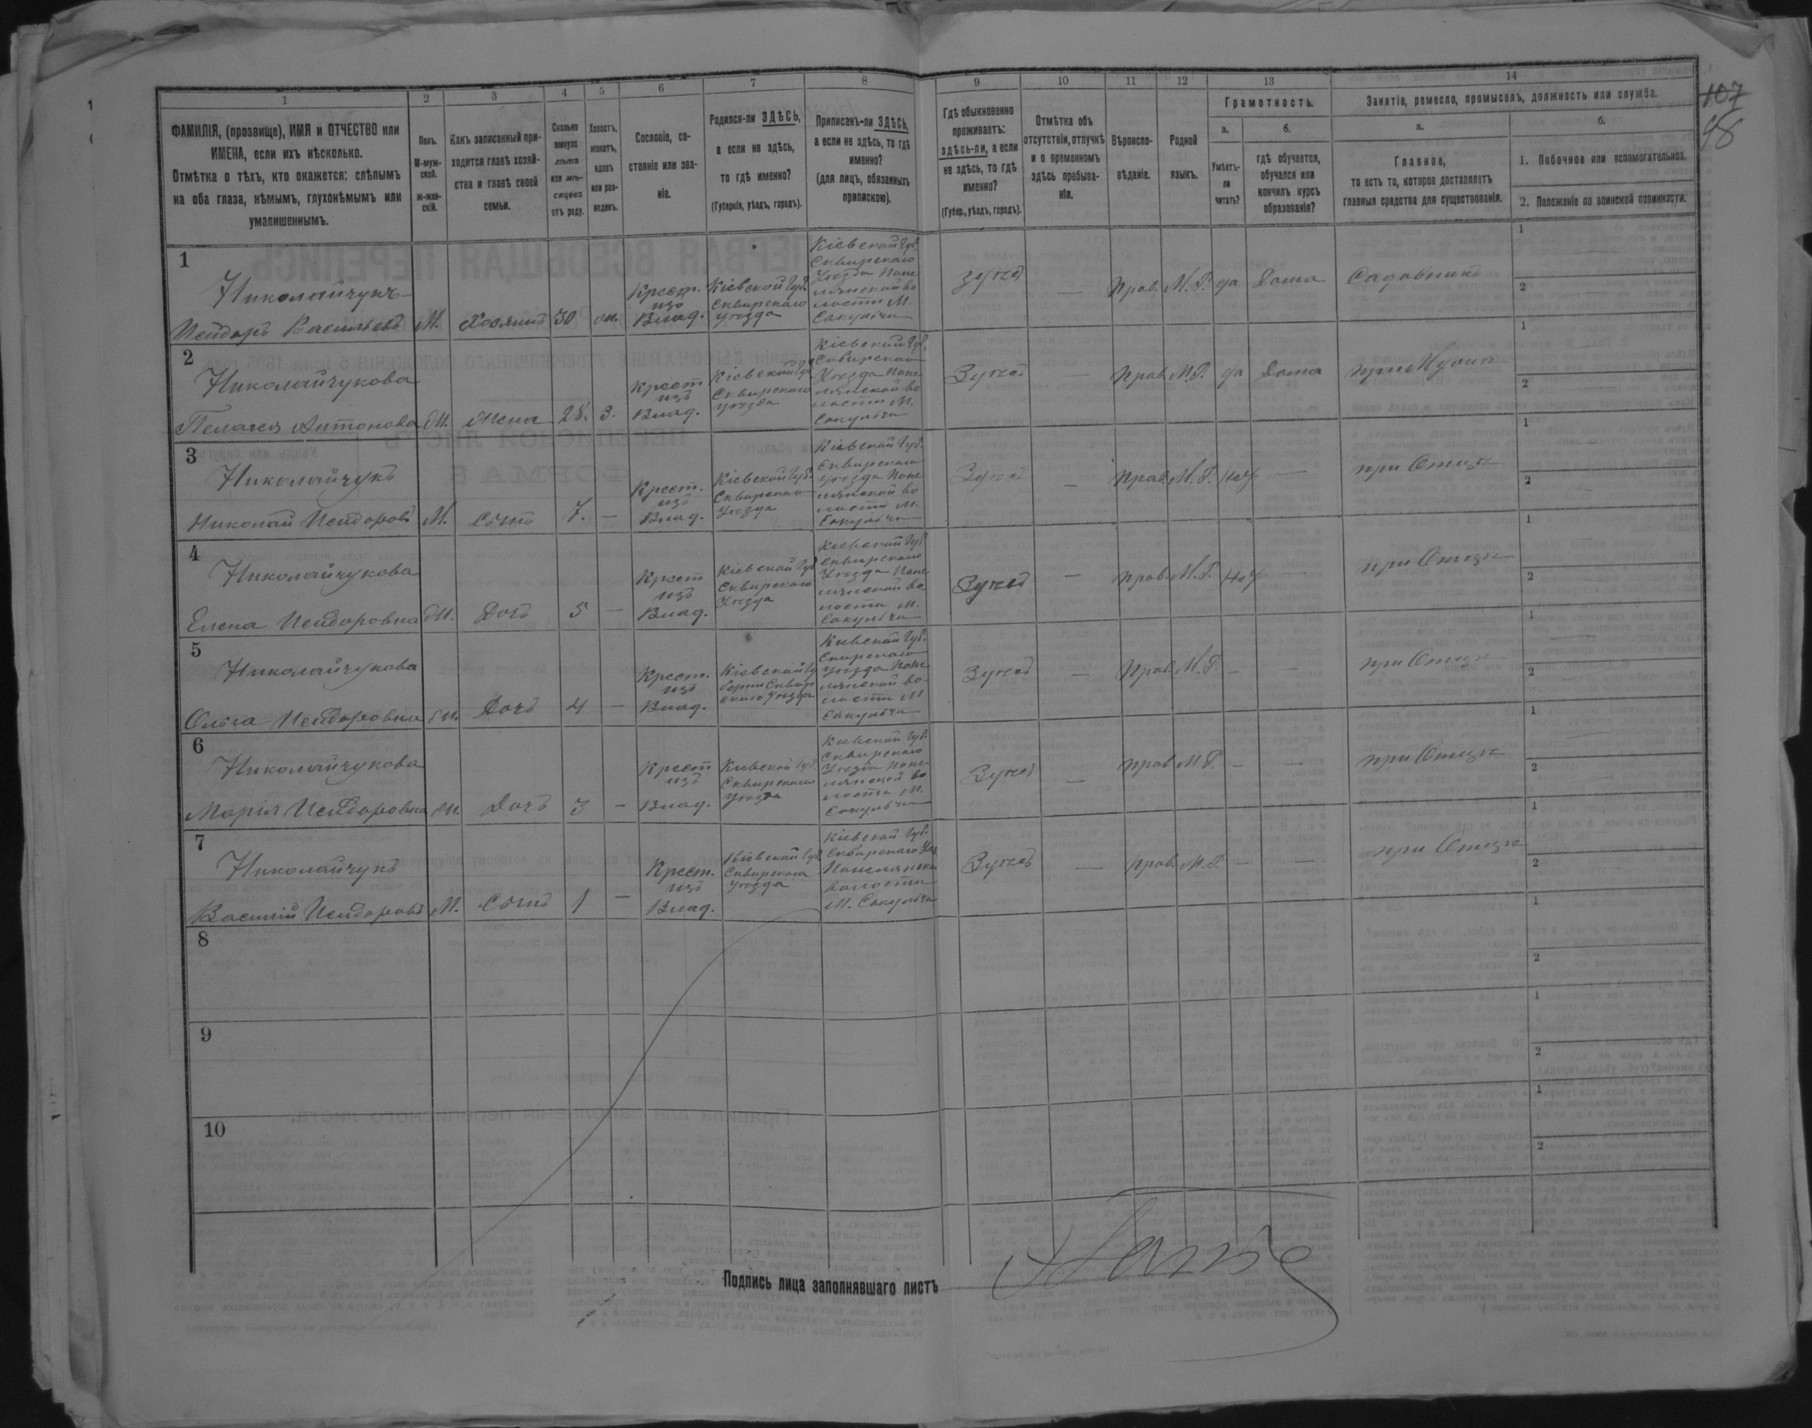 107
48
1 2 3 4 5 6 7 8 9 10 11 12 13 14
ФАМИЛІЯ, (прозвище), ИМЯ и ОТЧЕСТВО или
ИМЕНА, если ихъ нѣсколько.
Отмѣтка о тѣхъ, кто окажется: слѣпымъ
на оба глаза, нѣмымъ, глухонѣмымъ или
умалишеннымъ.
Полъ.
М-муж-
ской.
Ж-жен-
скій.
Какъ записанный при-
ходится главѣ хозяй-
ства и главѣ своей
семьи.
Сколько
минуло
лѣтъ
или мѣ-
сяцевъ
отъ роду.
Холостъ,
женатъ,
вдовъ
или раз-
веденъ.
Сословіе, со-
стояніе или зва-
ніе.
Родился-ли ЗДѢСЬ,
а если не здѣсь,
то гдѣ именно?
(Губернія, уѣздъ, городъ).
Приписанъ-ли ЗДѢСЬ,
а если не здѣсь, то гдѣ
именно?
(для лицъ, обязанныхъ
припискою).
Гдѣ обыкновенно
проживаетъ:
здѣсь-ли, а если
не здѣсь, то гдѣ
именно?
(Губер., уѣздъ, городъ).
Отмѣтка объ
отсутствіи, отлучкѣ
и о временномъ
здѣсь пребыва-
ніи.
Вѣроиспо-
вѣданіе.
Родной
языкъ.
Грамотность.
а.
Умѣетъ-
ли
читать?
б.
гдѣ обучается,
обучался или
кончилъ курсъ
образованія?
Занятіе, ремесло, промыселъ, должность или служба.
а.
Главное,
то есть то, которое доставляетъ
главныя средства для существованія.
б.
1. Побочное или вспомогательное.
2. Положеніе по воинской повинности.
1
Николайчукъ
Исидоръ Васильевъ М. Хозяинъ 30 жн.
Крест.
изъ
Влад.
Кіевской Губ.
Сквирскаго
уѣзда
Кіевской Губ.
Сквирскаго
Уѣзда
волости М.
здѣсь — Прав. М.Р. да дома Садовникъ
1
2
2
Николайчукова
Пелагея Антонова Ж. Жена 28. З.
Крест
изъ
Влад.
Кіевской Губ
Сквирскаго
уѣзда
Кіевской Губ.
Сквирскаго
Уѣзда
волости М.
Здѣсь — Прав. М.Р. да дома при Мужѣ
1
2
3
Николайчукъ
Николай Исидоровъ М. Сынъ 7. —
Крест.
изъ
Влад.
Кіевской Губ.
Сквирскаго
Уѣзда
Кіевской Губ.
Сквирскаго
Уѣзда
волости М.
Здѣсь — Прав. М.Р. нѣт — при Отцѣ
1
2
4
Николайчукова
Елена Исидоровна Ж. Дочь 5 —
Крест
изъ
Влад.
Кіевской Губ
Сквирскаго
Уѣзда
Кіевской Губ
Сквирскаго
Уѣзда
волости М.
Здѣсь — Прав. М.Р. нѣт — при Отцѣ
1
2
5
Николайчукова
Ольга Исидоровна Ж. Дочь 4 —
Крест.
изъ
Влад.
Кіевской Гу
берніи Сквир
скаго Уѣзда
Кіевской Губ.
Сквирскаго
Уѣзда
волости М
Здѣсь — Прав. М.Р. — — при Отцѣ
1
2
6
Николайчукова
Марія Исидоровна Ж. Дочь 3 —
Крест
изъ
Влад.
Кіевской Губ.
Сквирскаго
Уѣзда
Кіевской Губ.
Сквирскаго
Уѣзда
волости М.
Здѣсь — Прав. М.Р. — — при Отцѣ
1
2
7
Николайчукъ
Василій Исидоровъ М. Сынъ 1 —
Крест.
изъ
Влад.
Кіевской Губ.
Сквирскаго
Уѣзда
Кіевской Губ.
Сквирскаго
волости
М.
Здѣсь — Прав. М.Р. — — при Отцѣ
1
2
8
1
2
9
1
2
10
1
2
Подпись лица заполнявшаго листъ